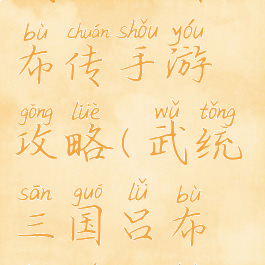 bù chuán shǒu yóu
布传手游
gōng lüè wǔ tǒng
攻略(武统
sān guó lǚ bù
三国吕布